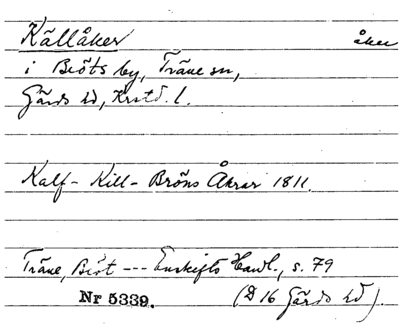 Källåker åker
i Biöts by, Träne sn,
Gärds hd, Krstd. l.
Kalf- Kill- Bröns Åkrar 1811.
Träne, Biöt --- Enskifts Handl., s. 79
Nr 5339. (D 16 Gärds hd).